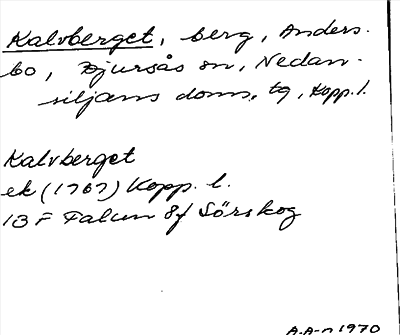 Kalvberget, berg, Anders-
bo, Bjursås sn, Nedan-
siljans doms. tg, Kopp. l.
Kalvberget
ek (1767) Kopp. l.
13 F Falun 8f Sörskog
A.A-n 1970